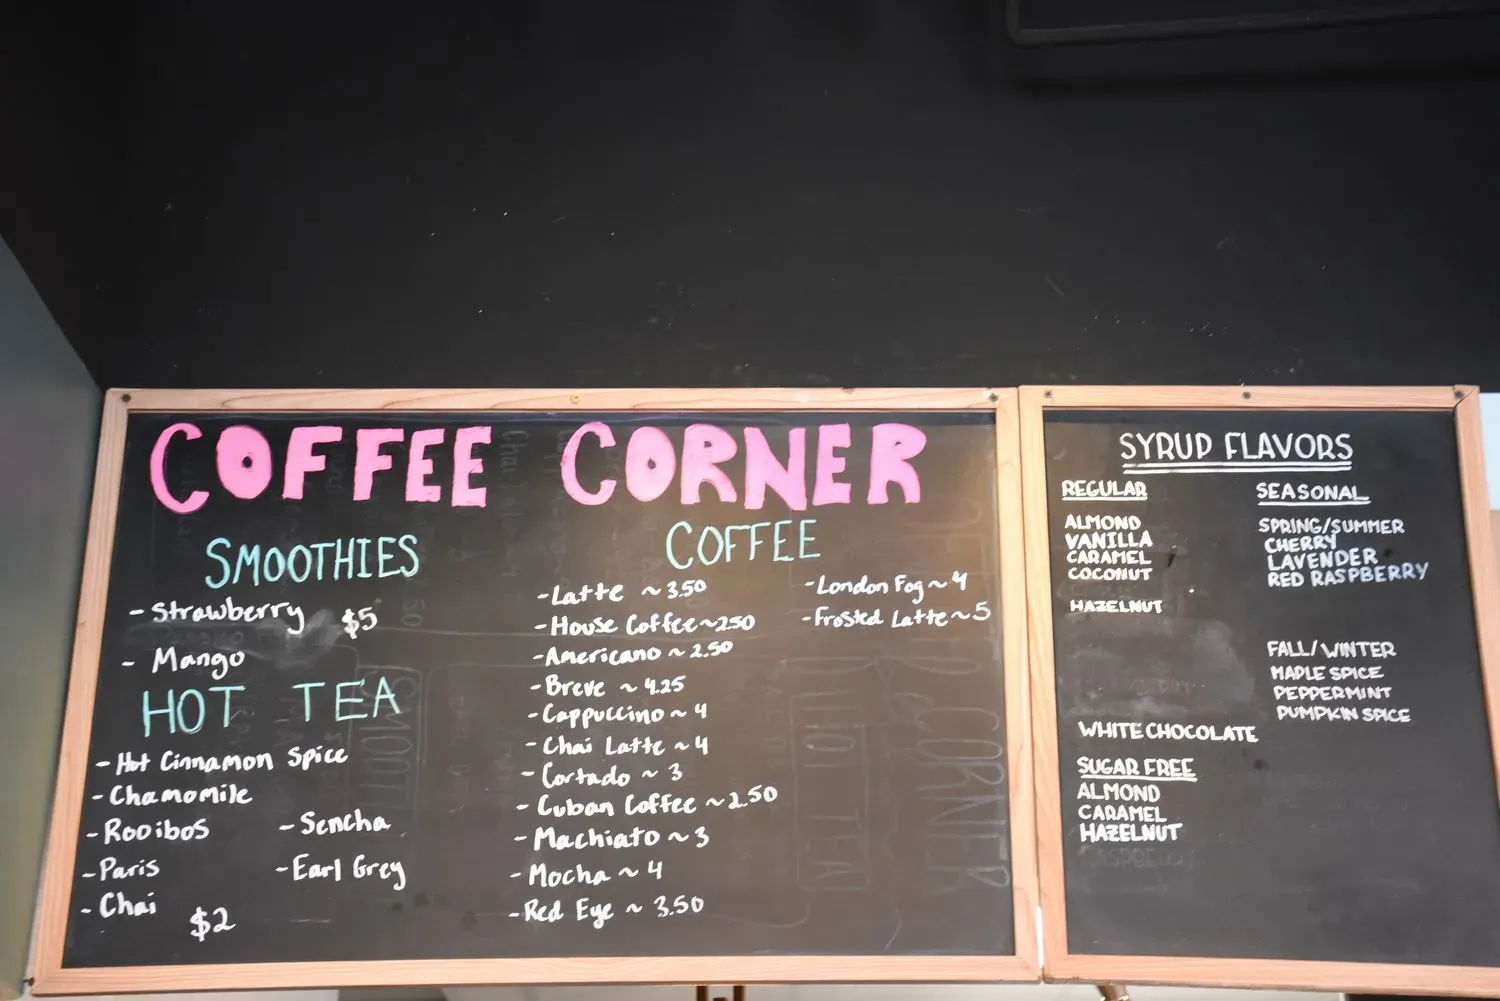 COFFEE CORNER
SMOOTHIES
- Strawberry $5
- Mango
HOT TEA
- Hot Cinnamon Spice
- Chamomile
- Rooibos
- Paris
- Chai
- Sencha
- Earl Grey
$2
COFFEE
- Latte ~ 3.50
- House Coffee ~ 2.50
- Americano ~ 2.50
- Breve ~ 4.25
- Cappuccino ~ 4
- Chai Latte ~ 4
- Cortado ~ 3
- Cuban Coffee ~ 2.50
- Machiato ~ 3
- Mocha ~ 4
- Red Eye ~ 3.50
- London Fog ~ 4
- Frosted Latte ~ 5
SYRUP FLAVORS
REGULAR
ALMOND
VANILLA
CARAMEL
COCONUT
HAZELNUT
WHITE CHOCOLATE
SUGAR FREE
ALMOND
CARAMEL
HAZELNUT
SEASONAL
SPRING/SUMMER
CHERRY
LAVENDER
RED RASPBERRY
FALL/WINTER
MAPLE SPICE
PEPPERMINT
PUMPKIN SPICE